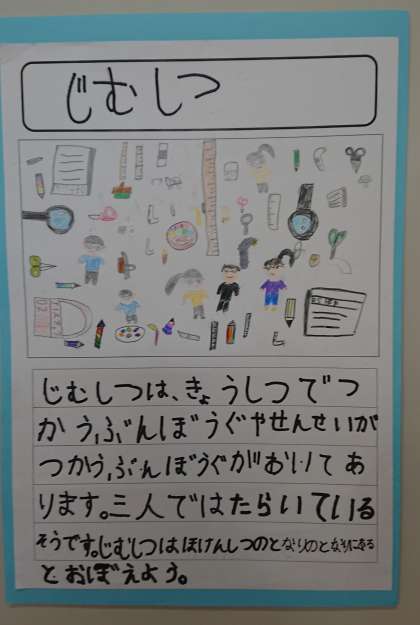 じむしつ
じむしつは、きょうしつでつ
かう、ぶんぼうぐやせんせいが
つかう、ぶんぼうぐがおいてあ
ります。三人ではたらいている
そうです。じむしつはほけんしつのとなりのとなりにある
とおぼえよう。